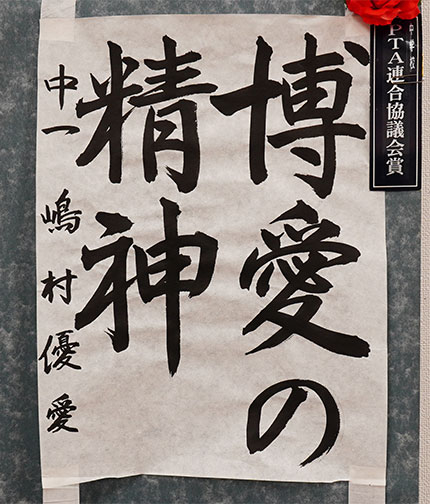 博愛の
精神
中一 嶋村優愛
PTA連合協議会賞